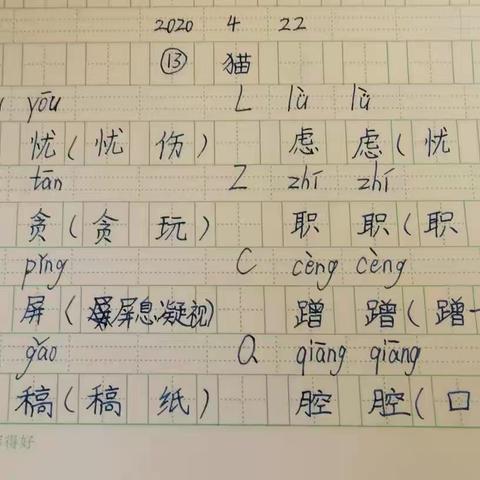 2020 4 22
⑬ 猫
yōu L lǜ lǜ
忧(忧 伤) 虑 虑(忧
tān Z zhí zhí
贪(贪 玩) 职 职(职
pǐng C cèng cèng
屏(屏息凝视) 蹭 蹭(蹭一
gǎo Q qiāng qiāng
稿(稿 纸) 腔 腔(口
得好